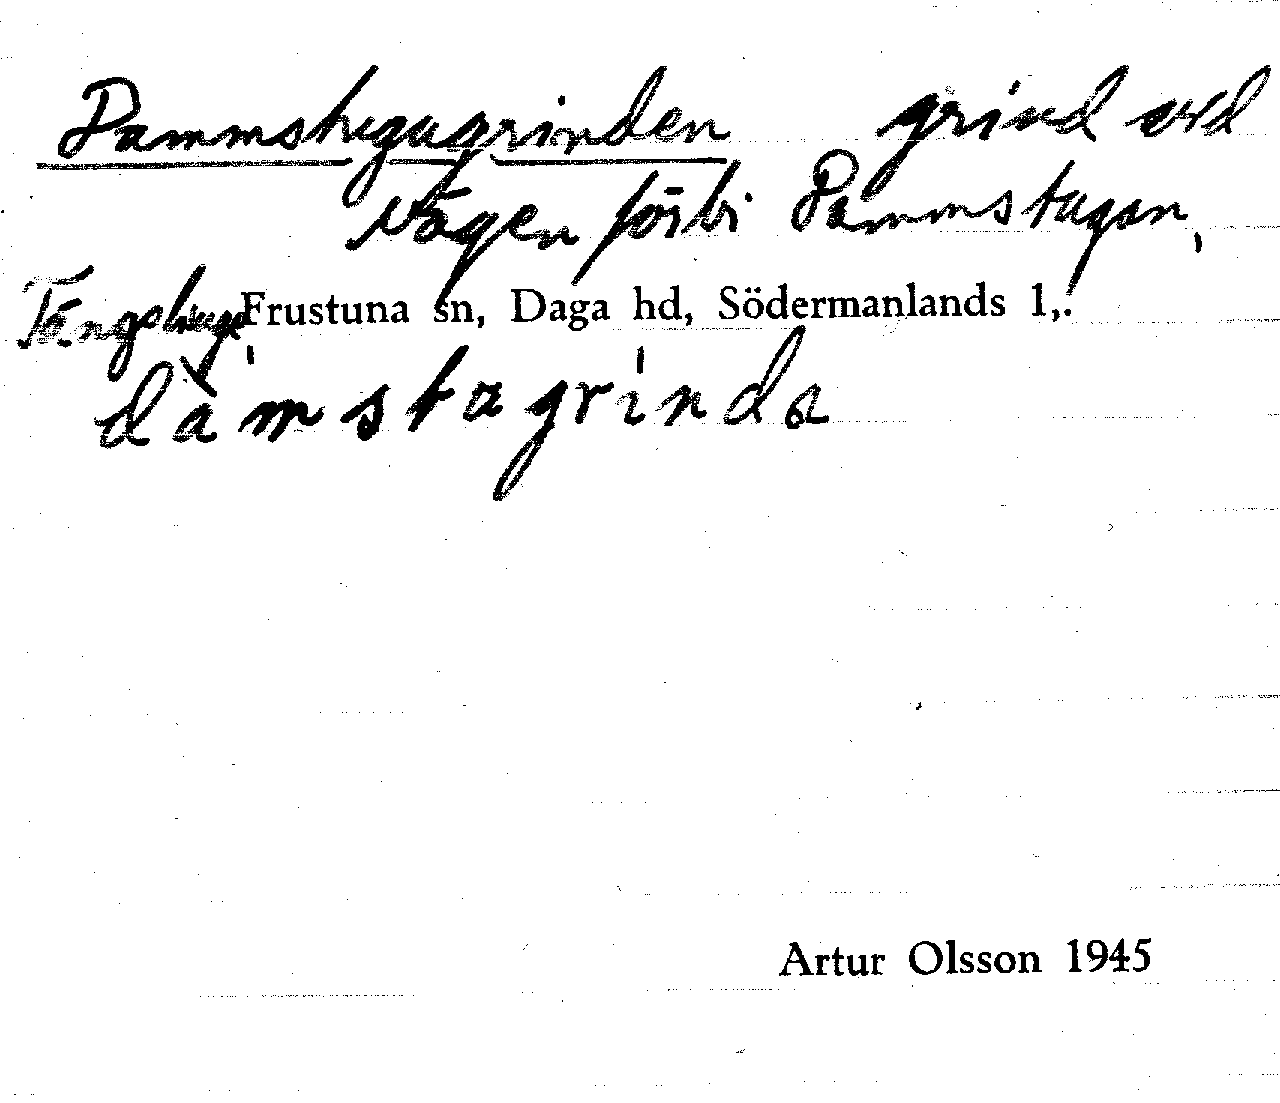 Dammstugugrinden grind vid
vägen förbi Dammstugan,
Frustuna sn, Daga hd, Södermanlands l,.
dàmstagrínda
Artur Olsson 1945